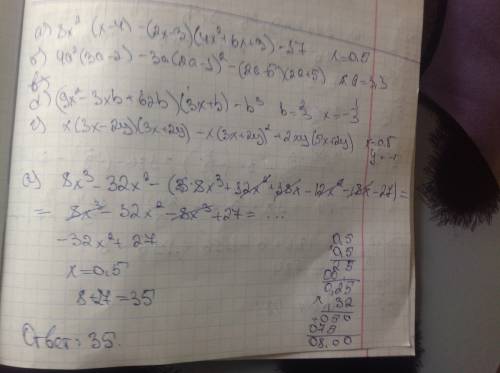 а) 8x² (x-4) - (2x-3)(4x²+6x+3) - 37
x=0,5
б) 4a²(3a-2) - 3a(2a-1)² - (2a-5)(2a+5)
a=3,3
в)
d) (9x²-3xb+b2b)(3x+b) - b³ b=2/3 x=-1/3
e) x(3x-2y)(3x+2y) - x(3x+2y)² + 2xy(5x+2y)
x=0,5
y=-1
а) 8x³ - 32x² - (8x³ + 12x² + 18x - 12x² - 18x - 27) =
= 8x³ - 32x² - 8x³ + 27 = ...
-32x² + 27
x=0,5
8+27=35
0,5
0,5
25
00
0,25
x 32
050
075
08.00
Ответ: 35.